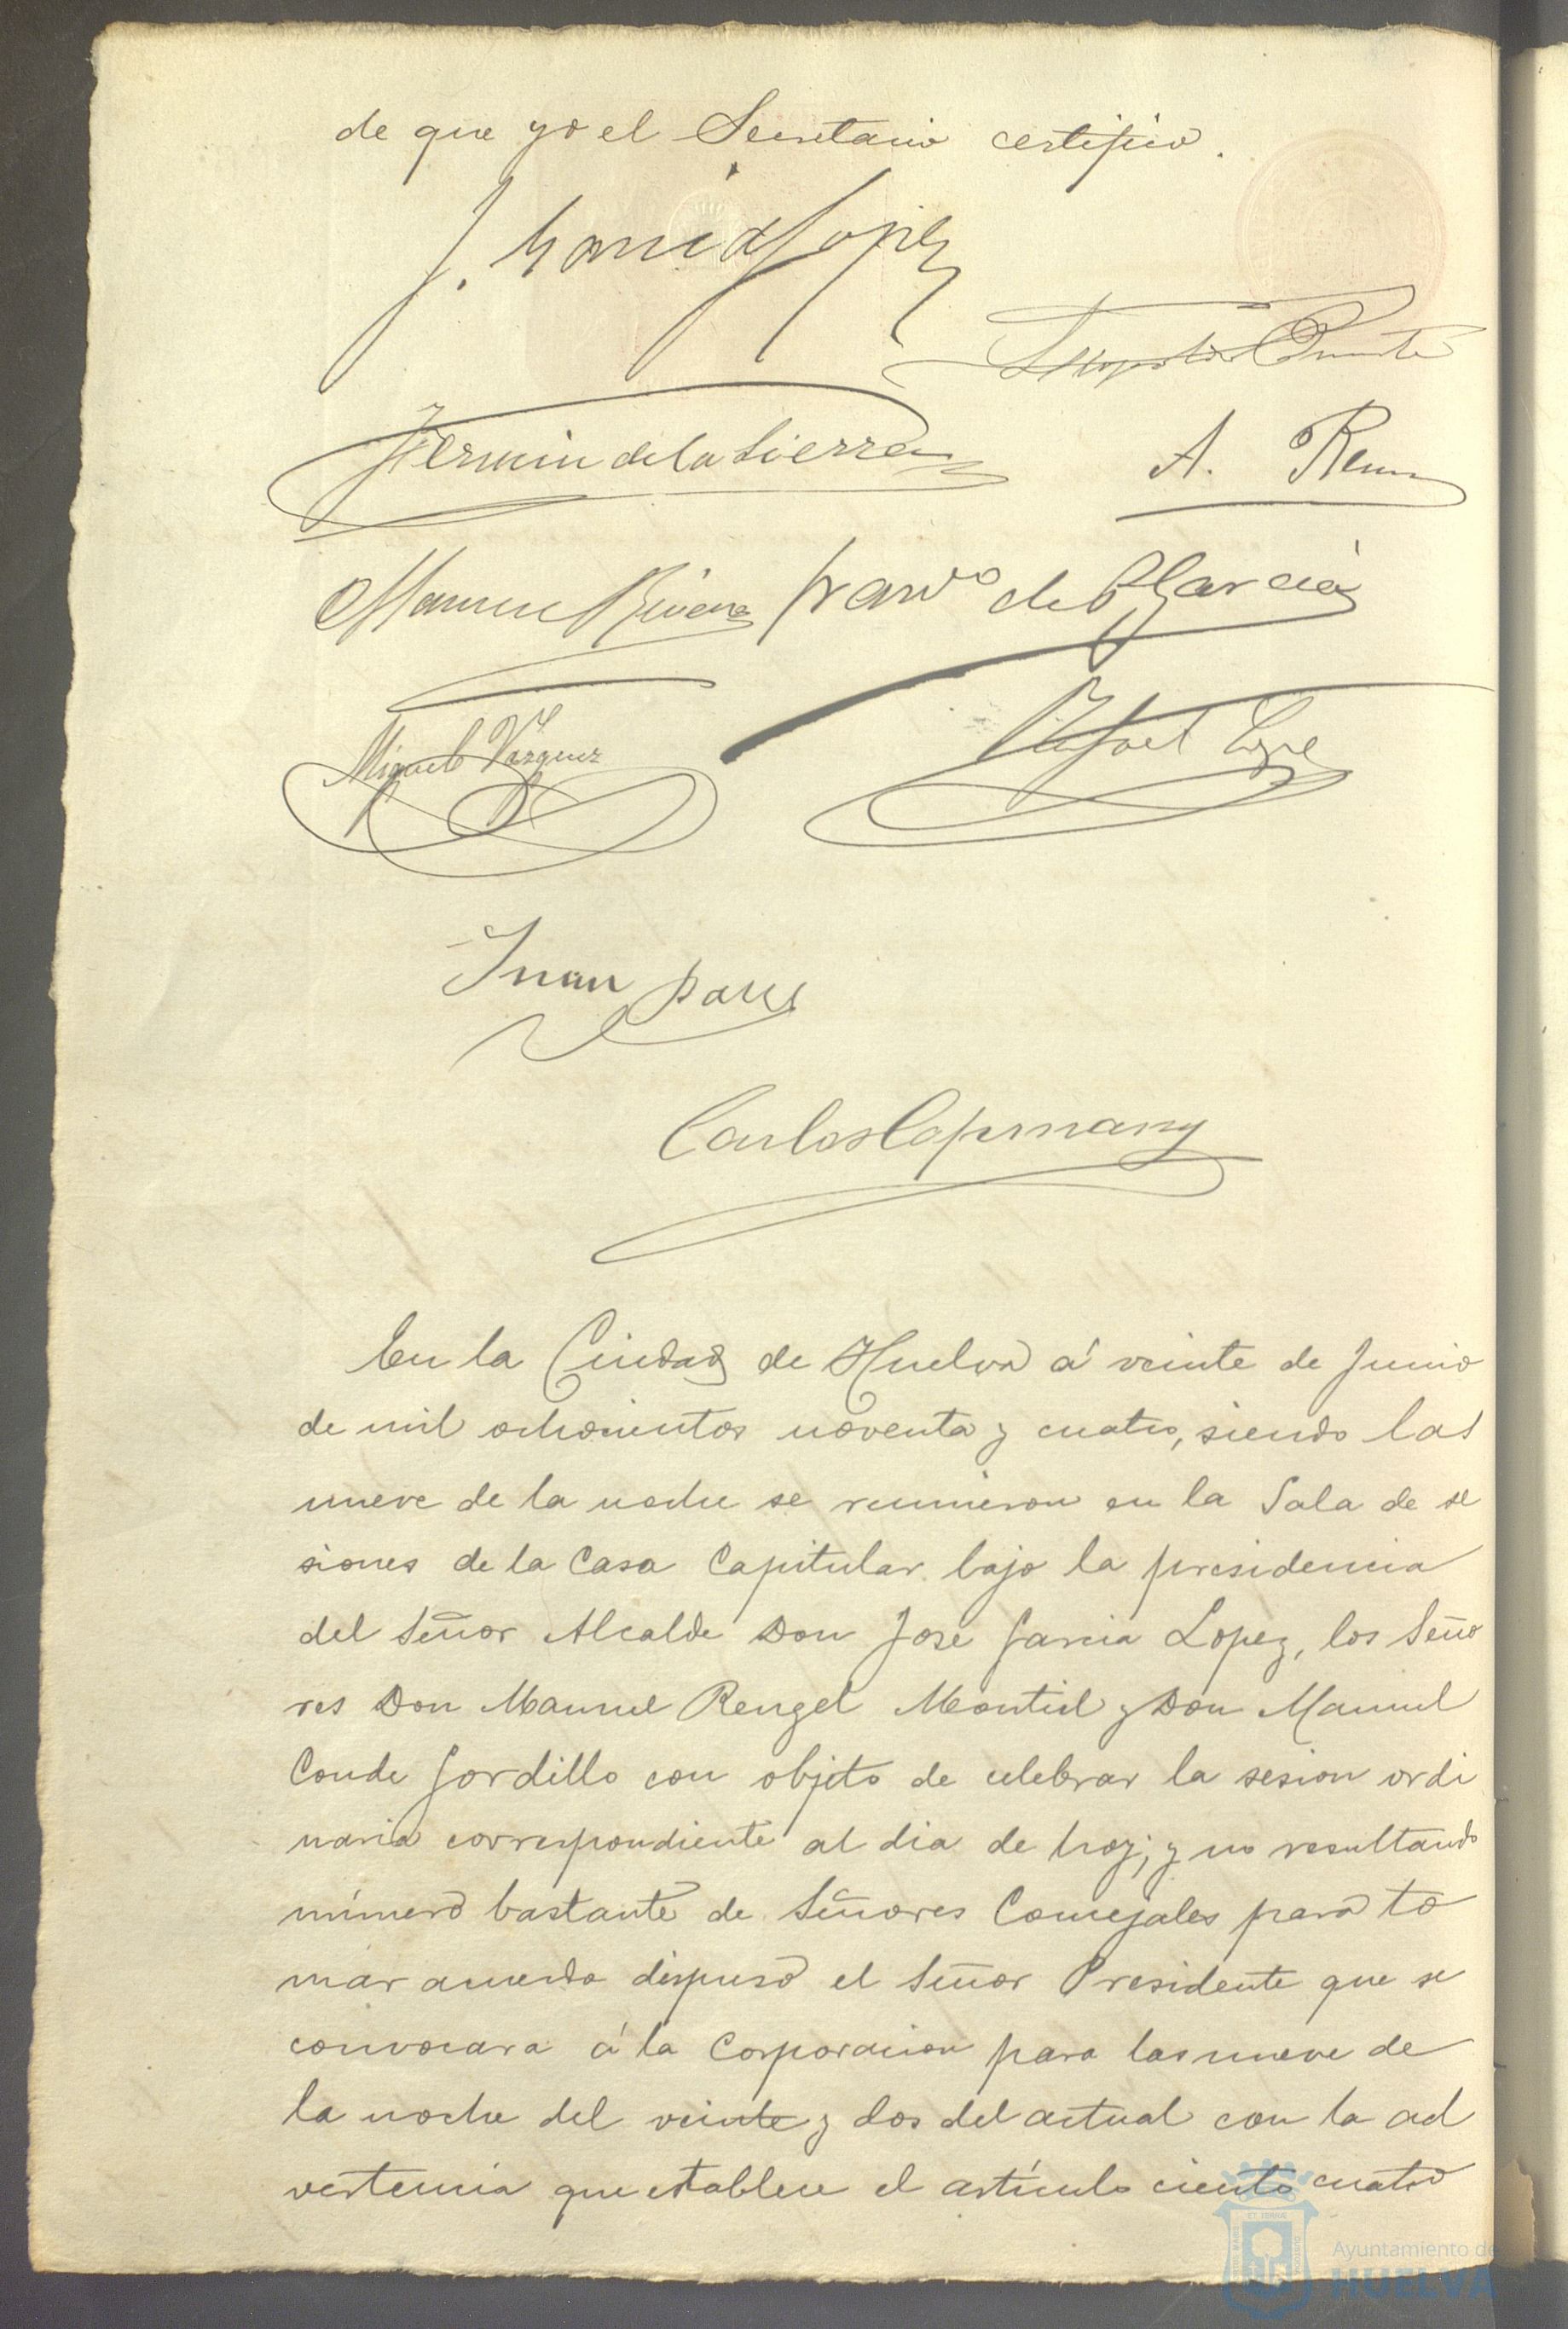 de que yo el Secretario certifico.
J. Garcia Lopez
Fermin de la Sierra
A.
Manuel Rivera Franco de P Garcia
Miguel Vazquez
Rafael
Juan
Carlos Copmany
En la Ciudad de Huelva á veinte de Junio
de mil ochocientos noventa y cuatro, siendo las
nueve de la noche se reunieron en la Sala de se
siones de la Casa Capitular bajo la presidencia
del Señor Alcalde Don José Garcia Lopez, los Seño
res Don Manuel Rengel Montiel y Don Manuel
Conde Gordillo con objeto de celebrar la sesion ordi
naria correspondiente al dia de hoy; y no resultando
número bastante de Señores Concejales para to
mar acuerdo dispuso el Señor Presidente que se
convocara á la Corporacion para las nueve de
la noche del veinte y dos del actual con la ad
vertencia que establece el artículo ciento cuatro
Ayuntamiento de
HUELVA